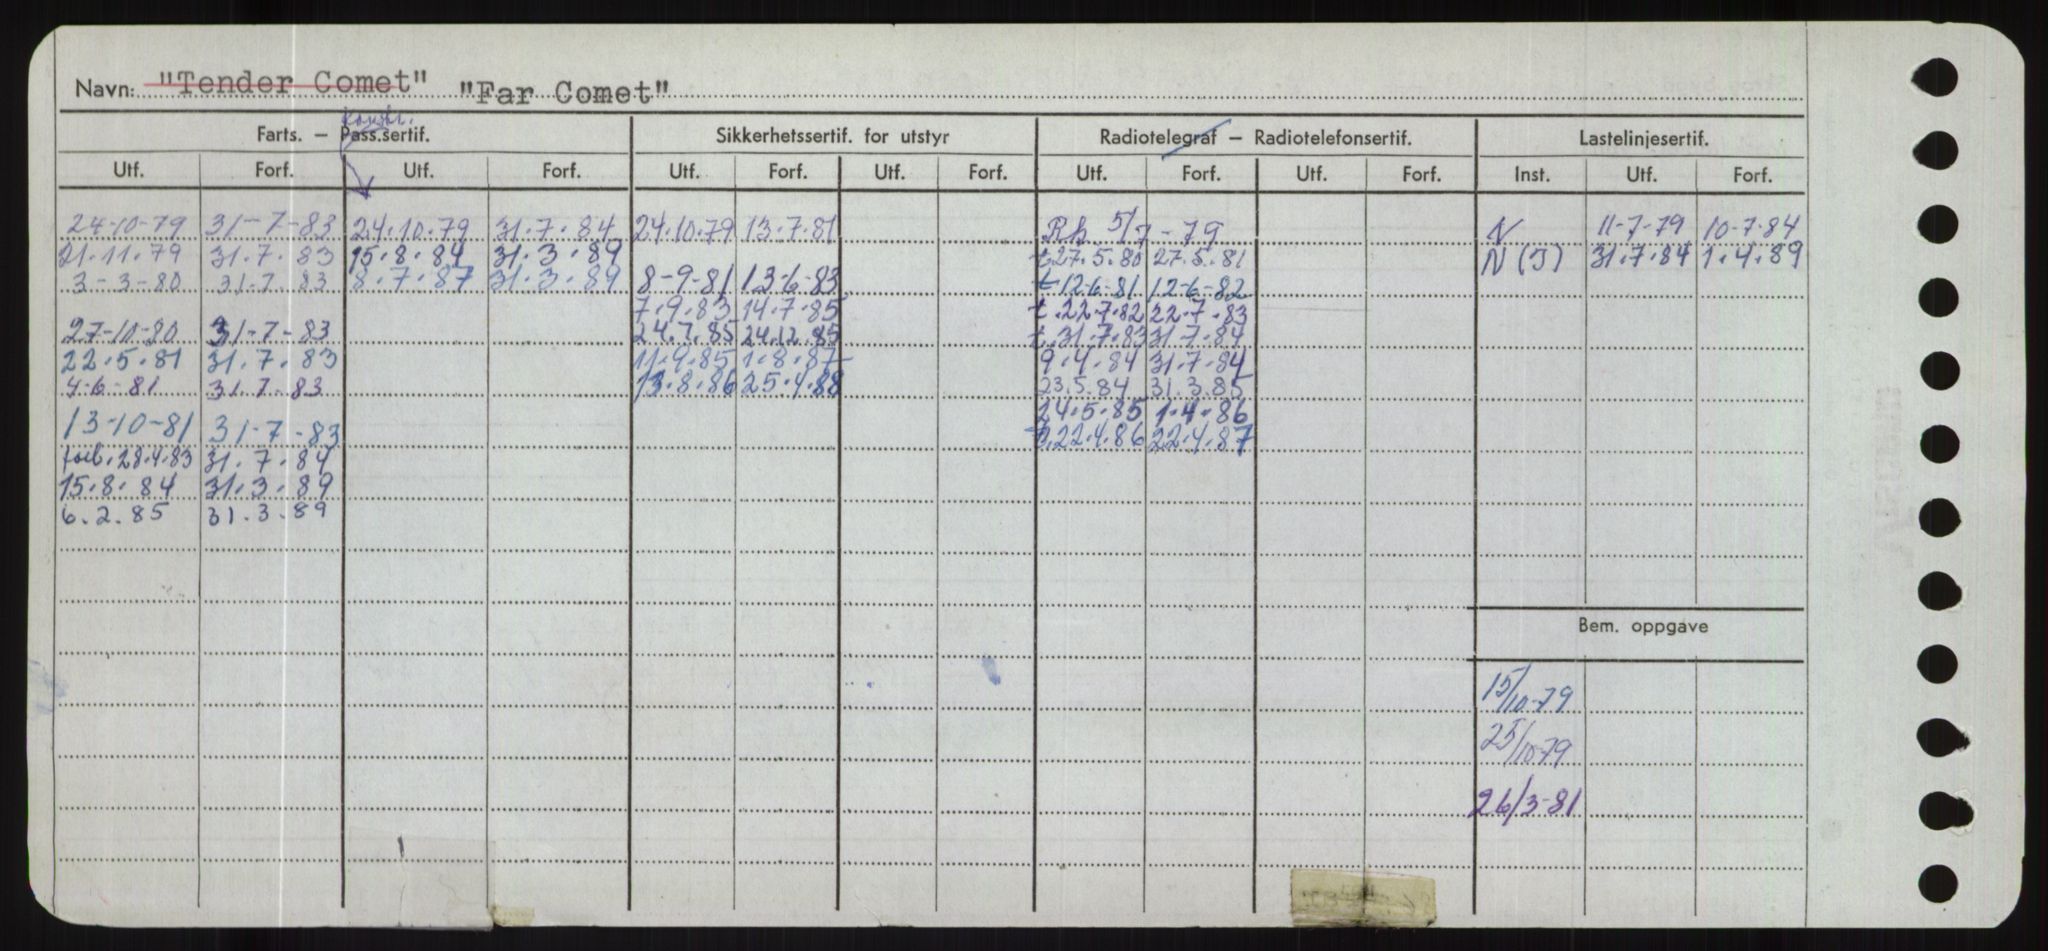 Navn: "Tender Comet" "Far Comet"
Konstr.
Farts. – Pass.sertif. Sikkerhetssertif. for utstyr Radiotelegraf – Radiotelefonsertif. Lastelinjesertif.
Utf. Forf. Utf. Forf. Utf. Forf. Utf. Forf. Utf. Forf. Utf. Forf. Inst. Utf. Forf.
24-10-79 31-7-83 24.10.79 31.7.84 24.10.79 13.7.81 Rh 5/7-79 N 11-7-79 10-7-84
21.11.79 31.7.83 15.8.84 31.3.89 t.27.5.80 27.5.81 N (J) 31.7.84 1.4.89
3-3-80 31.7.83 8.7.87 31.3.89 8-9-81 13-6-83 t-12-6-81 12-6-82
7.9.83 14.7.85 t.22.7.82 22.7.83
27-10-80 31-7-83 24.7.85 24.12.85 t.31.7.83 31.7.84
22.5.81 31.7.83 11.9.85 1.8.87 9.4.84 31.7.84
4-6-81 31.7.83 13.8.86 25.4.88 23.5.84 31.3.85
13-10-81 31-7-83 24.5.85 1.4.86
28.4.83 31.7.84 t.22.4.86 22.4.87
15.8.84 31.3.89
6.2.85 31.3.89
Bem. oppgave
15/10-79
25/10-79
26/3-81